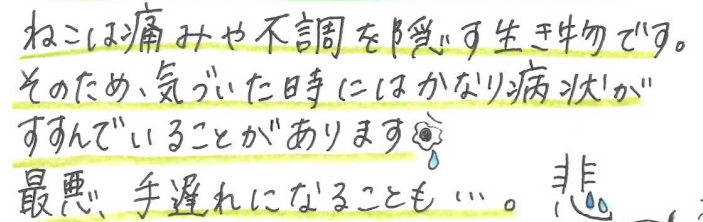 ねこは痛みや不調を隠す生き物です。
そのため、気づいた時にはかなり病状が
すすんでいることがあります
最悪、手遅れになることも…。
悲